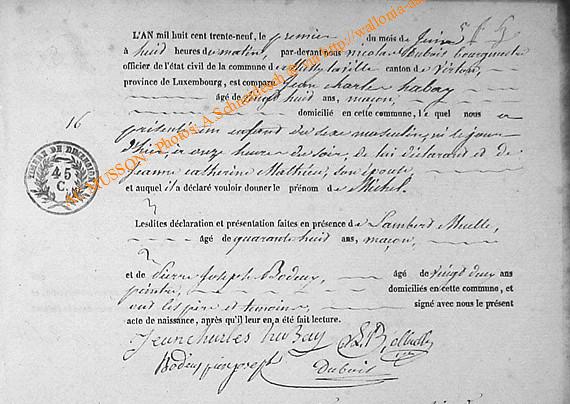 L'AN mil huit cent trente-neuf, le premier du mois de Juin
à huit heures du matin, par-devant nous nicolas Dubois bourguemestre
officier de l'état civil de la commune de ville canton de Virton,
province de Luxembourg, est comparu Jean Charle habay
âgé de vingt huit ans, maçon,
domicilié en cette commune, le quel nous a
16
présenté un enfant du sexe masculin, né le jour
d'hier, a onze heure du soir, de lui déclarant et de
Jeanne catherine Mathieu, son épouse
et auquel il a déclaré vouloir donner le prénom de Michel
TIMBRE DE
45
C.
Lesdites déclaration et présentation faites en présence de Lambert
âgé de quarante huit ans, maçon,
et de Pierre Joseph Bodeux, âgé de vingt deux ans
peintre, domiciliés en cette commune, et
ont les père et temoins signé avec nous le présent
acte de naissance, après qu'il leur en a été fait lecture.
Jean Charles habay
Dubois
MUSSON - Photos: A. Schneidesch @ from http://wallonia-as